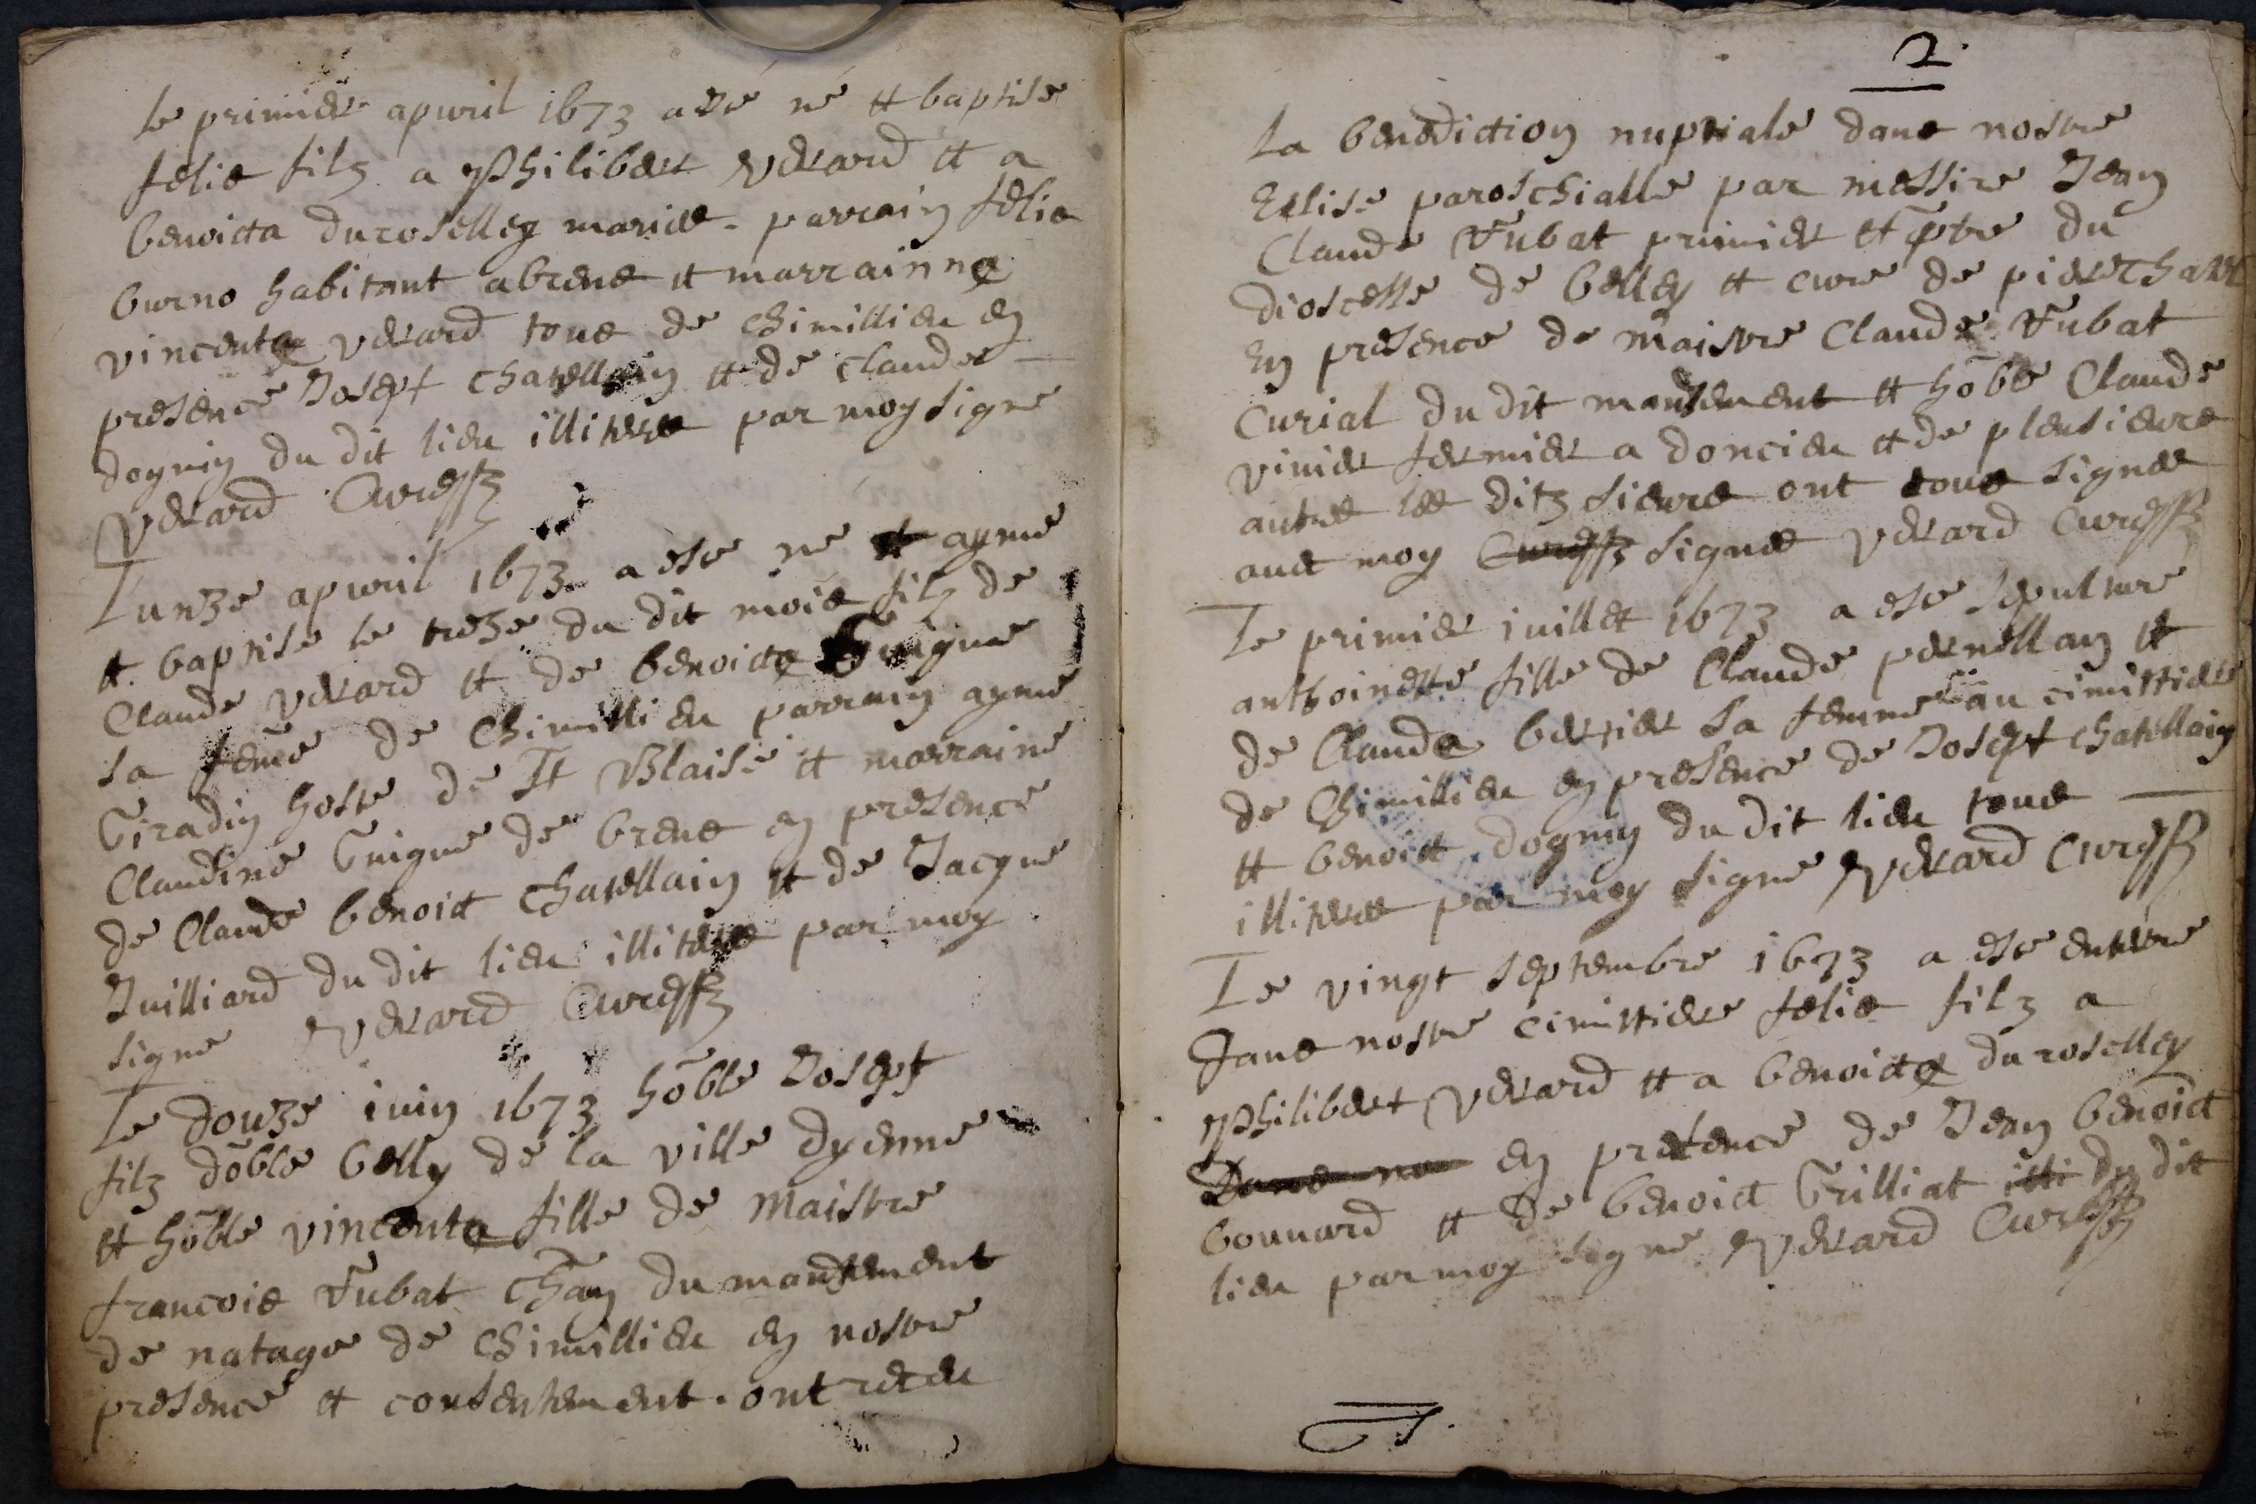 le primier apuril 1673 a esté né et baptise
felis filz a Philibert Verard et a
benoicta duroselley maries - parrain felis
burno habitant a brens et marrainna
vincenta verard tous de Chimillieu en
presence Josept chatellain et de claude -
dognin du dit lieu illiteres par moy signe
Verard Cure
Lunze apuril 1673 a este né et ayme
et baptise le treze du dit mois filz de
Claude verard et de benoicta Guigue
sa feme de Chimillieu parrain ayme
Giradin hoste de St Blaise et marraine
Claudine Guigue de brens en presence
de Claude benoict chatellain et de Jacque
Juilliard du dit lieu illiteres par moy
signe Verard Cure
Le douze iuin 1673 hõble Josept
filz dõble belly de la ville dyenne
et hõble vincenta fille de Maistre
francois Fubat Chan du mandement
de natage de Chimillieu en nostre
presence et consentement . ont receu
2
la benediction nuptiale dans nostre
Eglise paroschialle par messire Jean
Claude Fubat primier et pbre du
dioscesse de belley et cure de pierechatel
En presence de maistre Claude Fubat
Curial du dit mandement et hõble Claude
vivier fermier a doncieu et de pleusieurs
autres les ditz sieurs ont tous signes
auet moy Cure signes Verard Cure
Le primier iuillet 1673 a este sepulture
anthoinette fille de Claude pernellan et
de Clauda bertier sa femme au cimittiere
de Chimillieu en presence de Josept chatellain
et benoict dognin du dit lieu tous
illiteres par moy signe Verard Cure
Le vingt septembre 1673 a este enterre
Dans nostre cimittiere felis filz a
Philibert Verard et a benoicta duroselley
Dans no en presence de Jean benoict
bonnard et de benoict Grilliat illi du dit
lieu par moy signe Verard Cure